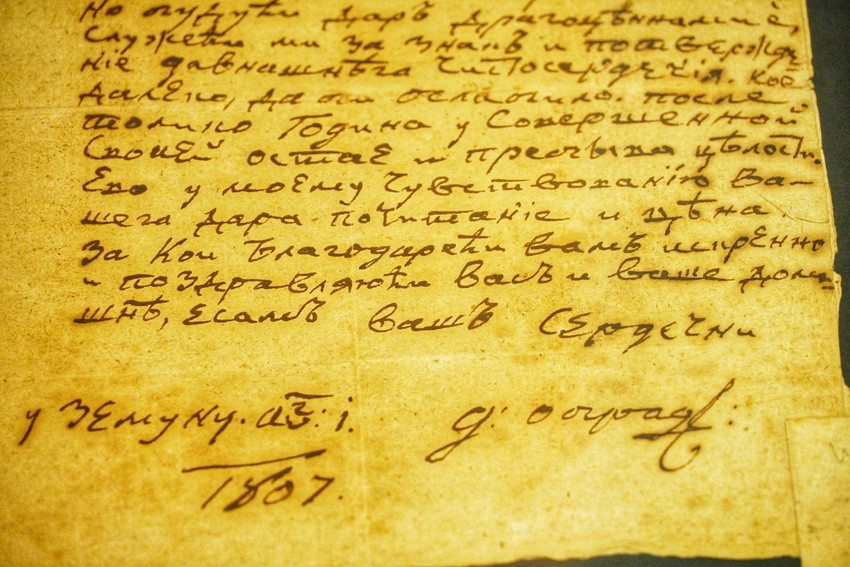 но будући даръ драгоцѣннаміе,
служећи ми за знанъ и потвержде
ніе давнашнѣга чистосердечія. кое
далеко, да би ослабило. после
толико Година у Совершенной
Своией остае и пресъыва цѣлости.
Еко у моему Чувствованію Ва-
шега дара почитаніе и цѣна.
За кои благодарећи вамъ искренно
и поздравляюћи васъ и ваше дома
шнѣ, есамъ вашъ Сердечни
у Земуну. аѵ: i.
1807.
д: обрад: